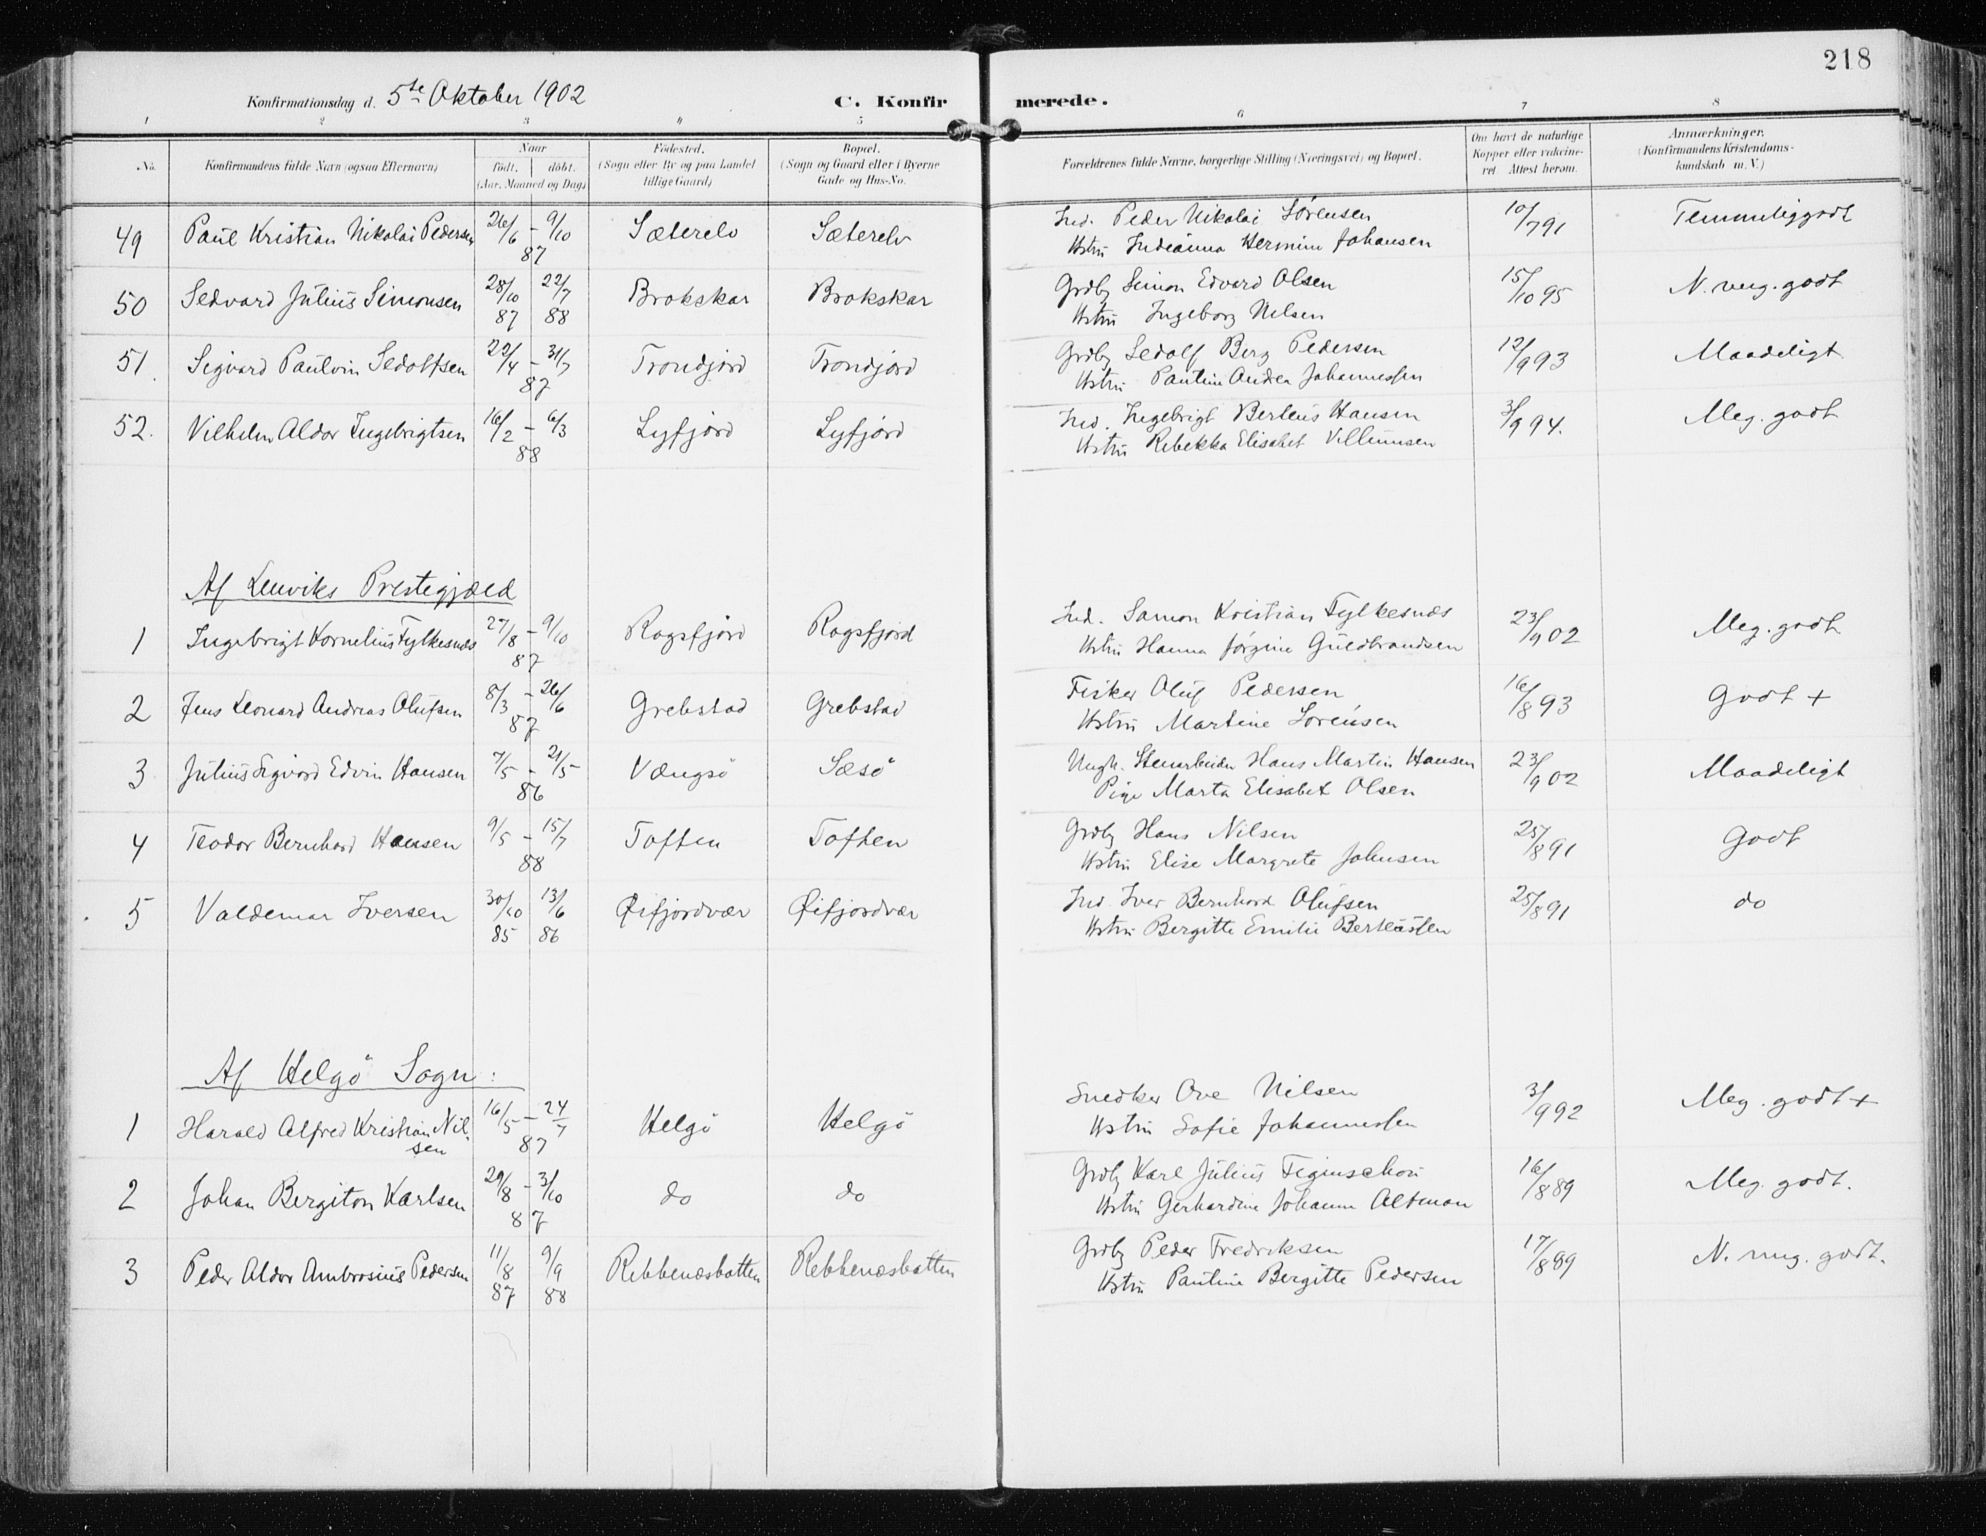 218
Konfirmationsdag d. 5te Oktober 1902 C. Konfirmerede.
1 2 3 4 5 6 7 8
No. Konfirmandens fulde Navn (ogsaa Efternavn) Naar født. døbt. (Aar, Maaned og Dag) Fødested. (Sogn eller By og paa Landet tillige Gaard) Bopæl. (Sogn og Gaard eller i Byerne Gade og Hus-No. Forældrenes fulde Navne, borgerlige Stilling (Næringsvei) og Bopæl. Om havt de naturlige Kopper eller vaccineret. Attest herom. Anmærkninger. (Konfirmandens Kristendomskundskab m. V.)
49 Paul Kristian Nikolai Pedersen 26/6 - 9/10 87 Sæterelv Sæterelv Ind. Peder Nikolai Sørensen 10/7 91 Temmeliggodt
Hstru Indianna Hermine Johansen
50 Sedvard Julius Simonsen 28/10 87 22/7 88 Brokskar Brokskar Grdbr Simon Edvard Olsen 15/10 95 N. meg. godt
Hstru Ingeborg Nilsen
51. Sigvard Paulvin Sedolfsen 22/4 - 31/7 87 Trondjord Trondjord Grdbr Sedolf Berg Pedersen 12/9 93 Maadeligt
Hstru Pauline Andrea Johannessen
52. Vilhelm Aldor Ingebrigtsen 16/2 - 6/3 88 Lyfjord Lyfjord Ind. Ingebrigt Berteus Hansen 3/9 94. Meg. godt
Hstru Rebekka Elisabet Villumsen
Af Lenviks Prestegjæld
1 Ingebrigt Kornelius Fylkesnæs 27/8 - 9/10 87 Rogsfjord Rogsfjord Ind. Samon Kristian Fylkesnæs 23/9 02 Meg. godt
Hstru Hanna Jørgine Guldbrandsen
2 Jens Leonard Andreas Olufsen 8/3 - 26/6 87 Grebstad Grebstad Fisker Oluf Pedersen 16/8 93 Godt +
Hstru Martine Sørensen
3 Julius Sigvard Edvin Hansen 7/5 - 21/5 86 Vængsø Sæsø Ungk. Stenarbeider Hans Martin Hansen 23/9 02 Maadeligt
Pige Marta Elisabet Olsen
4 Teodor Bernhard Hansen 9/5 - 15/7 88 Toften Toften Grdbr Hans Nilsen 25/8 91 Godt
Hstru Elise Margrete Johnsen
5 Valdemar Iversen 30/10 85 13/6 86 Øifjordvær Øifjordvær Ind. Iver Bernhard Olufsen 25/8 91 do
Hstru Bergitte Emilie Berteussen
Af Helgø Sogn:
1 Harald Alfred Kristian Nilsen 16/5 - 24/7 87 Helgø Helgø Snedker Ove Nilsen 3/9 92 Meg. godt +
Hstru Sofie Johannessen
2 Johan Bergiton Karlsen 29/8 - 3/10 87 do do Grdbr Karl Julius Figenschou 16/8 89 Meg. godt.
Hstru Gerhardine Johanne Altman
3 Peder Aldor Ambrosius Pedersen 11/8 87 9/9 88 Rebbenæsbotten Rebbenæsbotten Grdbr Peder Fredriksen 17/8 89 N. meg. godt.
Hstru Pauline Bergitte Pedersen